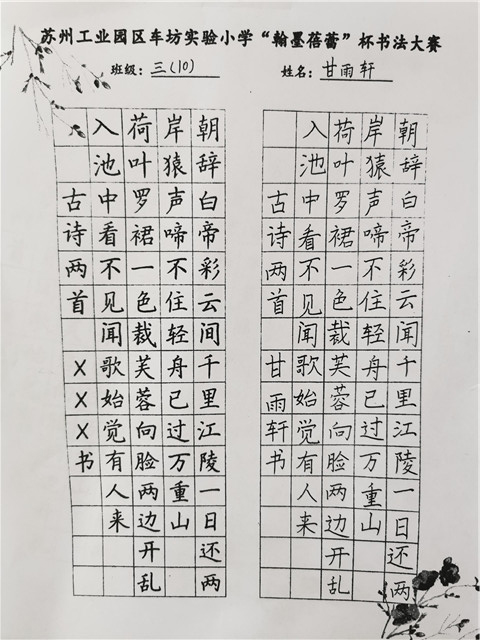 苏州工业园区车坊实验小学“翰墨蓓蕾”杯书法大赛
班级：三(10) 姓名：甘雨轩
朝辞白帝彩云间千里江陵一日还两
岸猿声啼不住轻舟已过万重山
荷叶罗裙一色裁芙蓉向脸两边开乱
入池中看不见闻歌始觉有人来
古诗两首 XXX书
朝辞白帝彩云间千里江陵一日还两
岸猿声啼不住轻舟已过万重山
荷叶罗裙一色裁芙蓉向脸两边开乱
入池中看不见闻歌始觉有人来
古诗两首 甘雨轩书